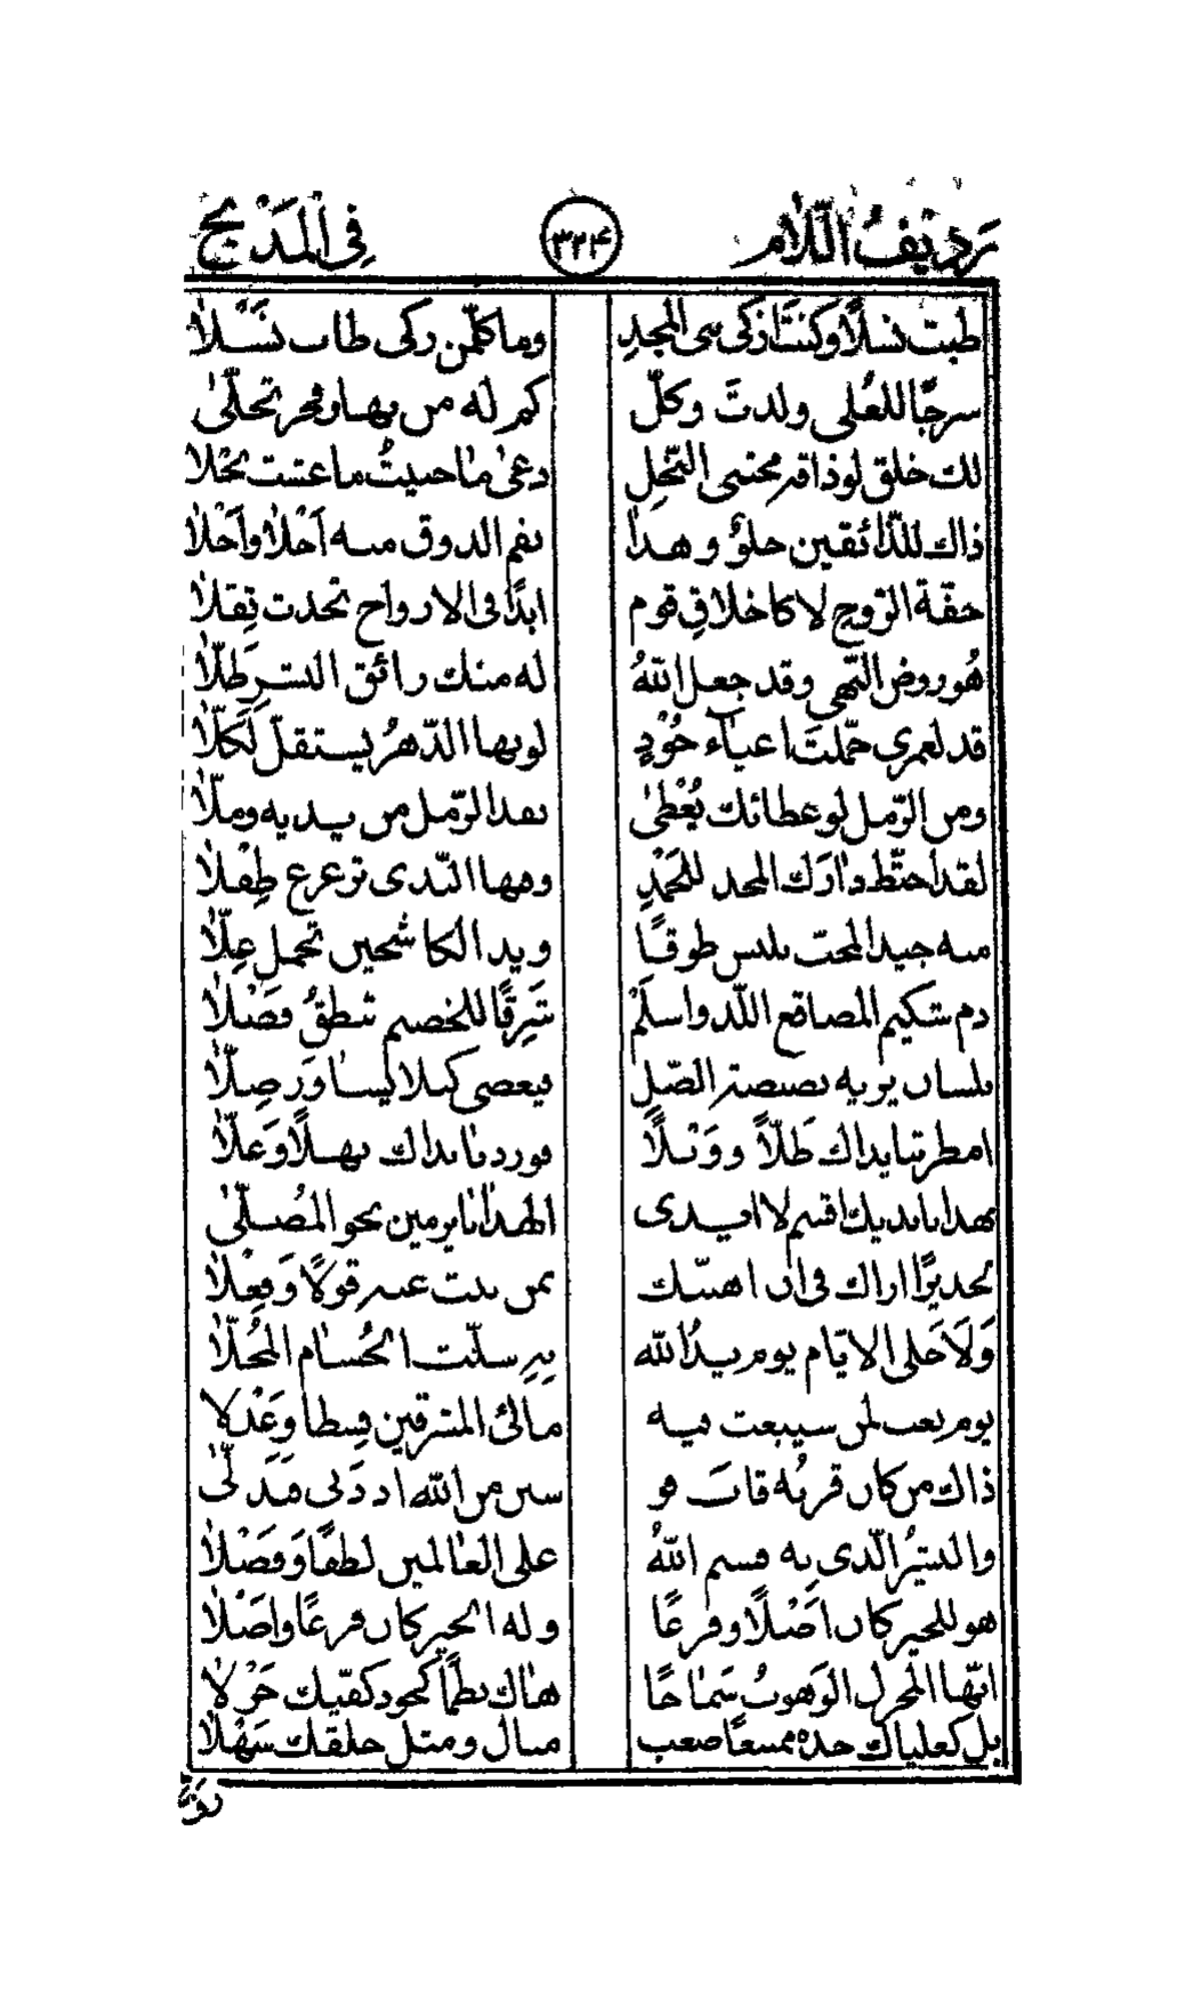 رديف اللام ٣٢٤ في المديح
طبت نسلًا وكنت أزكى بني المجدِ وما كلّ من زكى طاب نَسْلا
سرجًا للعُلى ولدتَ وكلّ كم له من بها وفخر تحلّى
لك خلق لو ذاقه مجتنى النّحلِ دعى ما حييتُ ما عشت نحْلا
ذاك للذّائقين حلوٌ وهذا بفم الذوق منه أحْلا وأحْلا
خفّة الرّوح لا كأخلاقِ قوم ابدًا في الارواح تحدث ثِقلا
هُو روض النّهى وقد جعل اللهُ له منك رائق البشرِ طَلّا
قد لعمري حمّلتَ اعباء جُوْدٍ لو بها الدّهرُ يستقلّ لَكَلّا
ومن الرّمل لو عطائك يُعْطىٰ نفد الرّمل من يديه وملّا
لقد اختطّ دارَك المجد للحَمْدِ وفيها النّدى ترعرع طِفْلا
منه جيد المحبّ يلبس طوقًا ويد الكاشحين تحمل غِلّا
دم شكيم المصاقع اللّد واسلَمْ مُتَرِقًا للخصم تنطقُ فصْلا
بلسان يريه نضنضة الصّلِ
امطرتنا يداك طَلّاً ووَبْلًا فوردنا نداك نهلًا وَعلّا
بهدايا يديك اقسم لا ايدى الهدايا يرمين نحو المُصلّىٰ
تحديرًا اراك في ان اهنّيك بمن نبت عنه قولًا وَفِعْلا
وَلَا حَلى الايّام يوم يدُ الله بِهِ سلّت الحُسام المُحلّا
يوم بعث لمن سيبعث فيه مالئ المشرقين قِسطًا وعَدْلا
ذاك من كان قربُه قابَ قو سين من الله اذ دَنى فتدلّىٰ
والبشيرُ الّذى به قسم اللهُ على العالمين لطفًا وَفَضْلا
هو للخير كان اصْلًا وفرعًا وله الخير كان فرعًا واصْلا
ايّها المجزل الوَهوبُ سَماحًا هاك نظمًا كجود كفّيك جَزْلا
بل كعلياك خذه ممتنعًا صعب منال ومثل خلقك سَهْلا